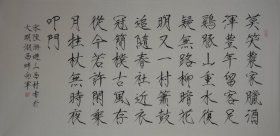 莫笑農家臘酒
渾豐年留客足
雞豚山重水復
疑無路柳暗花
明又一村簫鼓
追隨春社近衣
冠簡樸古風存
從今若許閒乘
月拄杖無時夜
叩門
宋陸游遊山西村書於